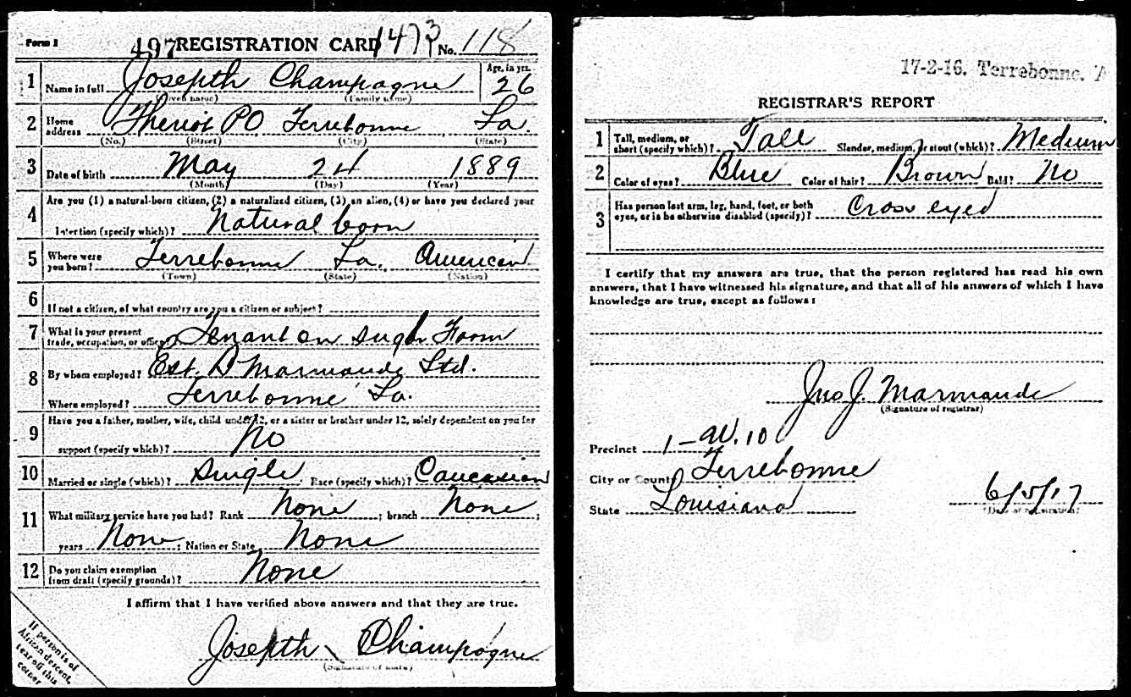 Form 1 497 REGISTRATION CARD 1473 No. 118
1 Name in full Josepth Champagne Age, in yrs. 26
(Given name) (Family name)
2 Home address Theriot PO Terrebonne La.
(No.) (Street) (City) (State)
3 Date of birth May 24 1889
(Month) (Day) (Year)
4 Are you (1) a natural-born citizen, (2) a naturalized citizen, (3) an alien, (4) or have you declared your
intention (specify which)? Natural born
5 Where were you born? Terrebonne La. American
(Town) (State) (Nation)
6 If not a citizen, of what country are you a citizen or subject?
7 What is your present trade, occupation, or office? Tenant on sugar Farm
8 By whom employed? Est. D Marmande Ltd.
Where employed? Terrebonne La.
9 Have you a father, mother, wife, child under 12, or a sister or brother under 12, solely dependent on you for
support (specify which)? No
10 Married or single (which)? Single Race (specify which)? Caucasian
11 What military service have you had? Rank None ; branch None ;
years None ; Nation or State None
12 Do you claim exemption from draft (specify grounds)? None
I affirm that I have verified above answers and that they are true.
Josepth Champagne
If person is of African descent, tear off this corner
17-2-16. Terrebonne.
REGISTRAR'S REPORT
1 Tall, medium, or short (specify which)? Tall Slender, medium, or stout (which)? Medium
2 Color of eyes? Blue Color of hair? Brown Bald? No
3 Has person lost arm, leg, hand, foot, or both
eyes, or is he otherwise disabled (specify)? Cross eyed
I certify that my answers are true, that the person registered has read his own
answers, that I have witnessed his signature, and that all of his answers of which I have
knowledge are true, except as follows:
Jno J. Marmande
(Signature of registrar)
Precinct 1-W.10
City or County Terrebonne
State Louisiana 6/5/17
(Date of registration)